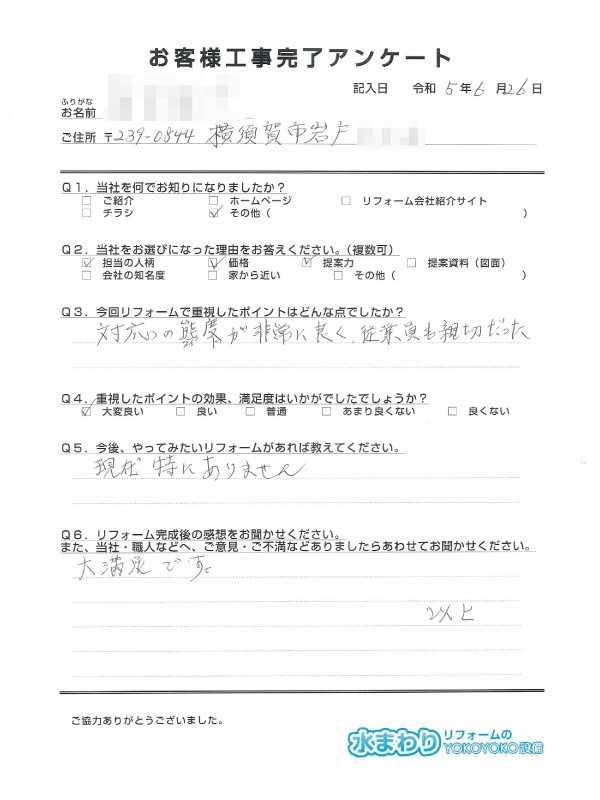 お客様工事完了アンケート
記入日 令和 5年6月26日
ふりがな
お名前
ご住所 〒239-0844 横須賀市岩戸
Q1．当社を何でお知りになりましたか？
□ ご紹介 □ ホームページ □ リフォーム会社紹介サイト
□ チラシ ☑ その他（ ）
Q2．当社をお選びになった理由をお答えください。（複数可）
☑ 担当の人柄 ☑ 価格 ☑ 提案力 □ 提案資料（図面）
□ 会社の知名度 □ 家から近い □ その他（ ）
Q3．今回リフォームで重視したポイントはどんな点でしたか？
対応の態度が非常に良く、従業員も親切だった
Q4．重視したポイントの効果、満足度はいかがでしたでしょうか？
☑ 大変良い □ 良い □ 普通 □ あまり良くない □ 良くない
Q5．今後、やってみたいリフォームがあれば教えてください。
現在特にありません
Q6．リフォーム完成後の感想をお聞かせください。
また、当社・職人などへ、ご意見・ご不満などありましたらあわせてお聞かせください。
大満足です。
以上
ご協力ありがとうございました。
水まわりリフォームのYOKOYOKO設備